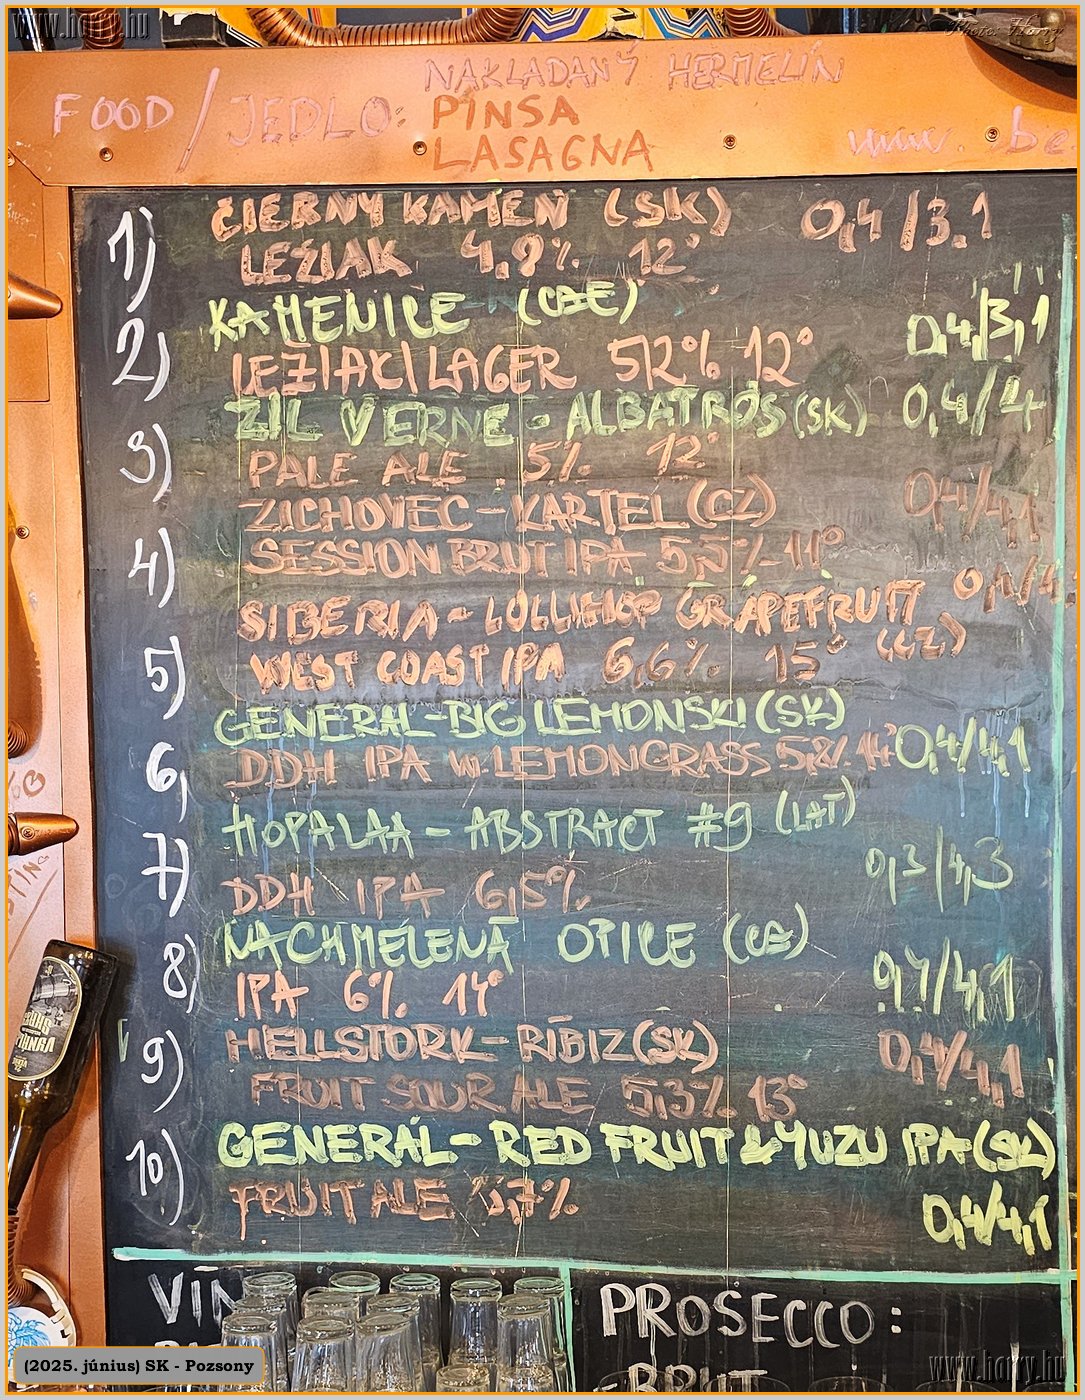 www.harry.hu
Photo: Harry
NAKLADANÝ HERMELÍN
FOOD / JEDLO: PINSA
LASAGNA
www.be
1) ČIERNY KAMEŇ (SK) 0,4/3.1
LEŽIAK 4,9% 12°
2) KAMENICE (CZE) 0,4/3,1
LEŽIAK/LAGER 5,2% 12°
3) ZIL VERNE - ALBATROS (SK) 0,4/4
PALE ALE 5% 12°
4) ZICHOVEC - KARTEL (CZ) 0,4/4,1
SESSION BRUT IPA 5,5% 11°
5) SIBERIA - LOLLIHOP GRAPEFRUIT 0,4/4,
WEST COAST IPA 6,6% 15° (CZ)
6, GENERÁL - BIG LEMONSKI (SK) 0,4/4,1
DDH IPA W. LEMONGRASS 5,8% 14°
7) HOPALAA - ABSTRACT #9 (LAT) 0,3/4,3
DDH IPA 6,5%
8) NACHMELENÁ OPICE (CZ) 0,4/4,1
IPA 6% 14°
9) HELLSTORK - RÍBIZ (SK) 0,4/4,1
FRUIT SOUR ALE 5,3% 13°
10) GENERÁL - RED FRUIT & YUZU IPA (SK)
FRUIT ALE ,7% 0,4/4,1
VÍN
PROSECCO:
- BRUT
(2025. június) SK - Pozsony
www.harry.hu